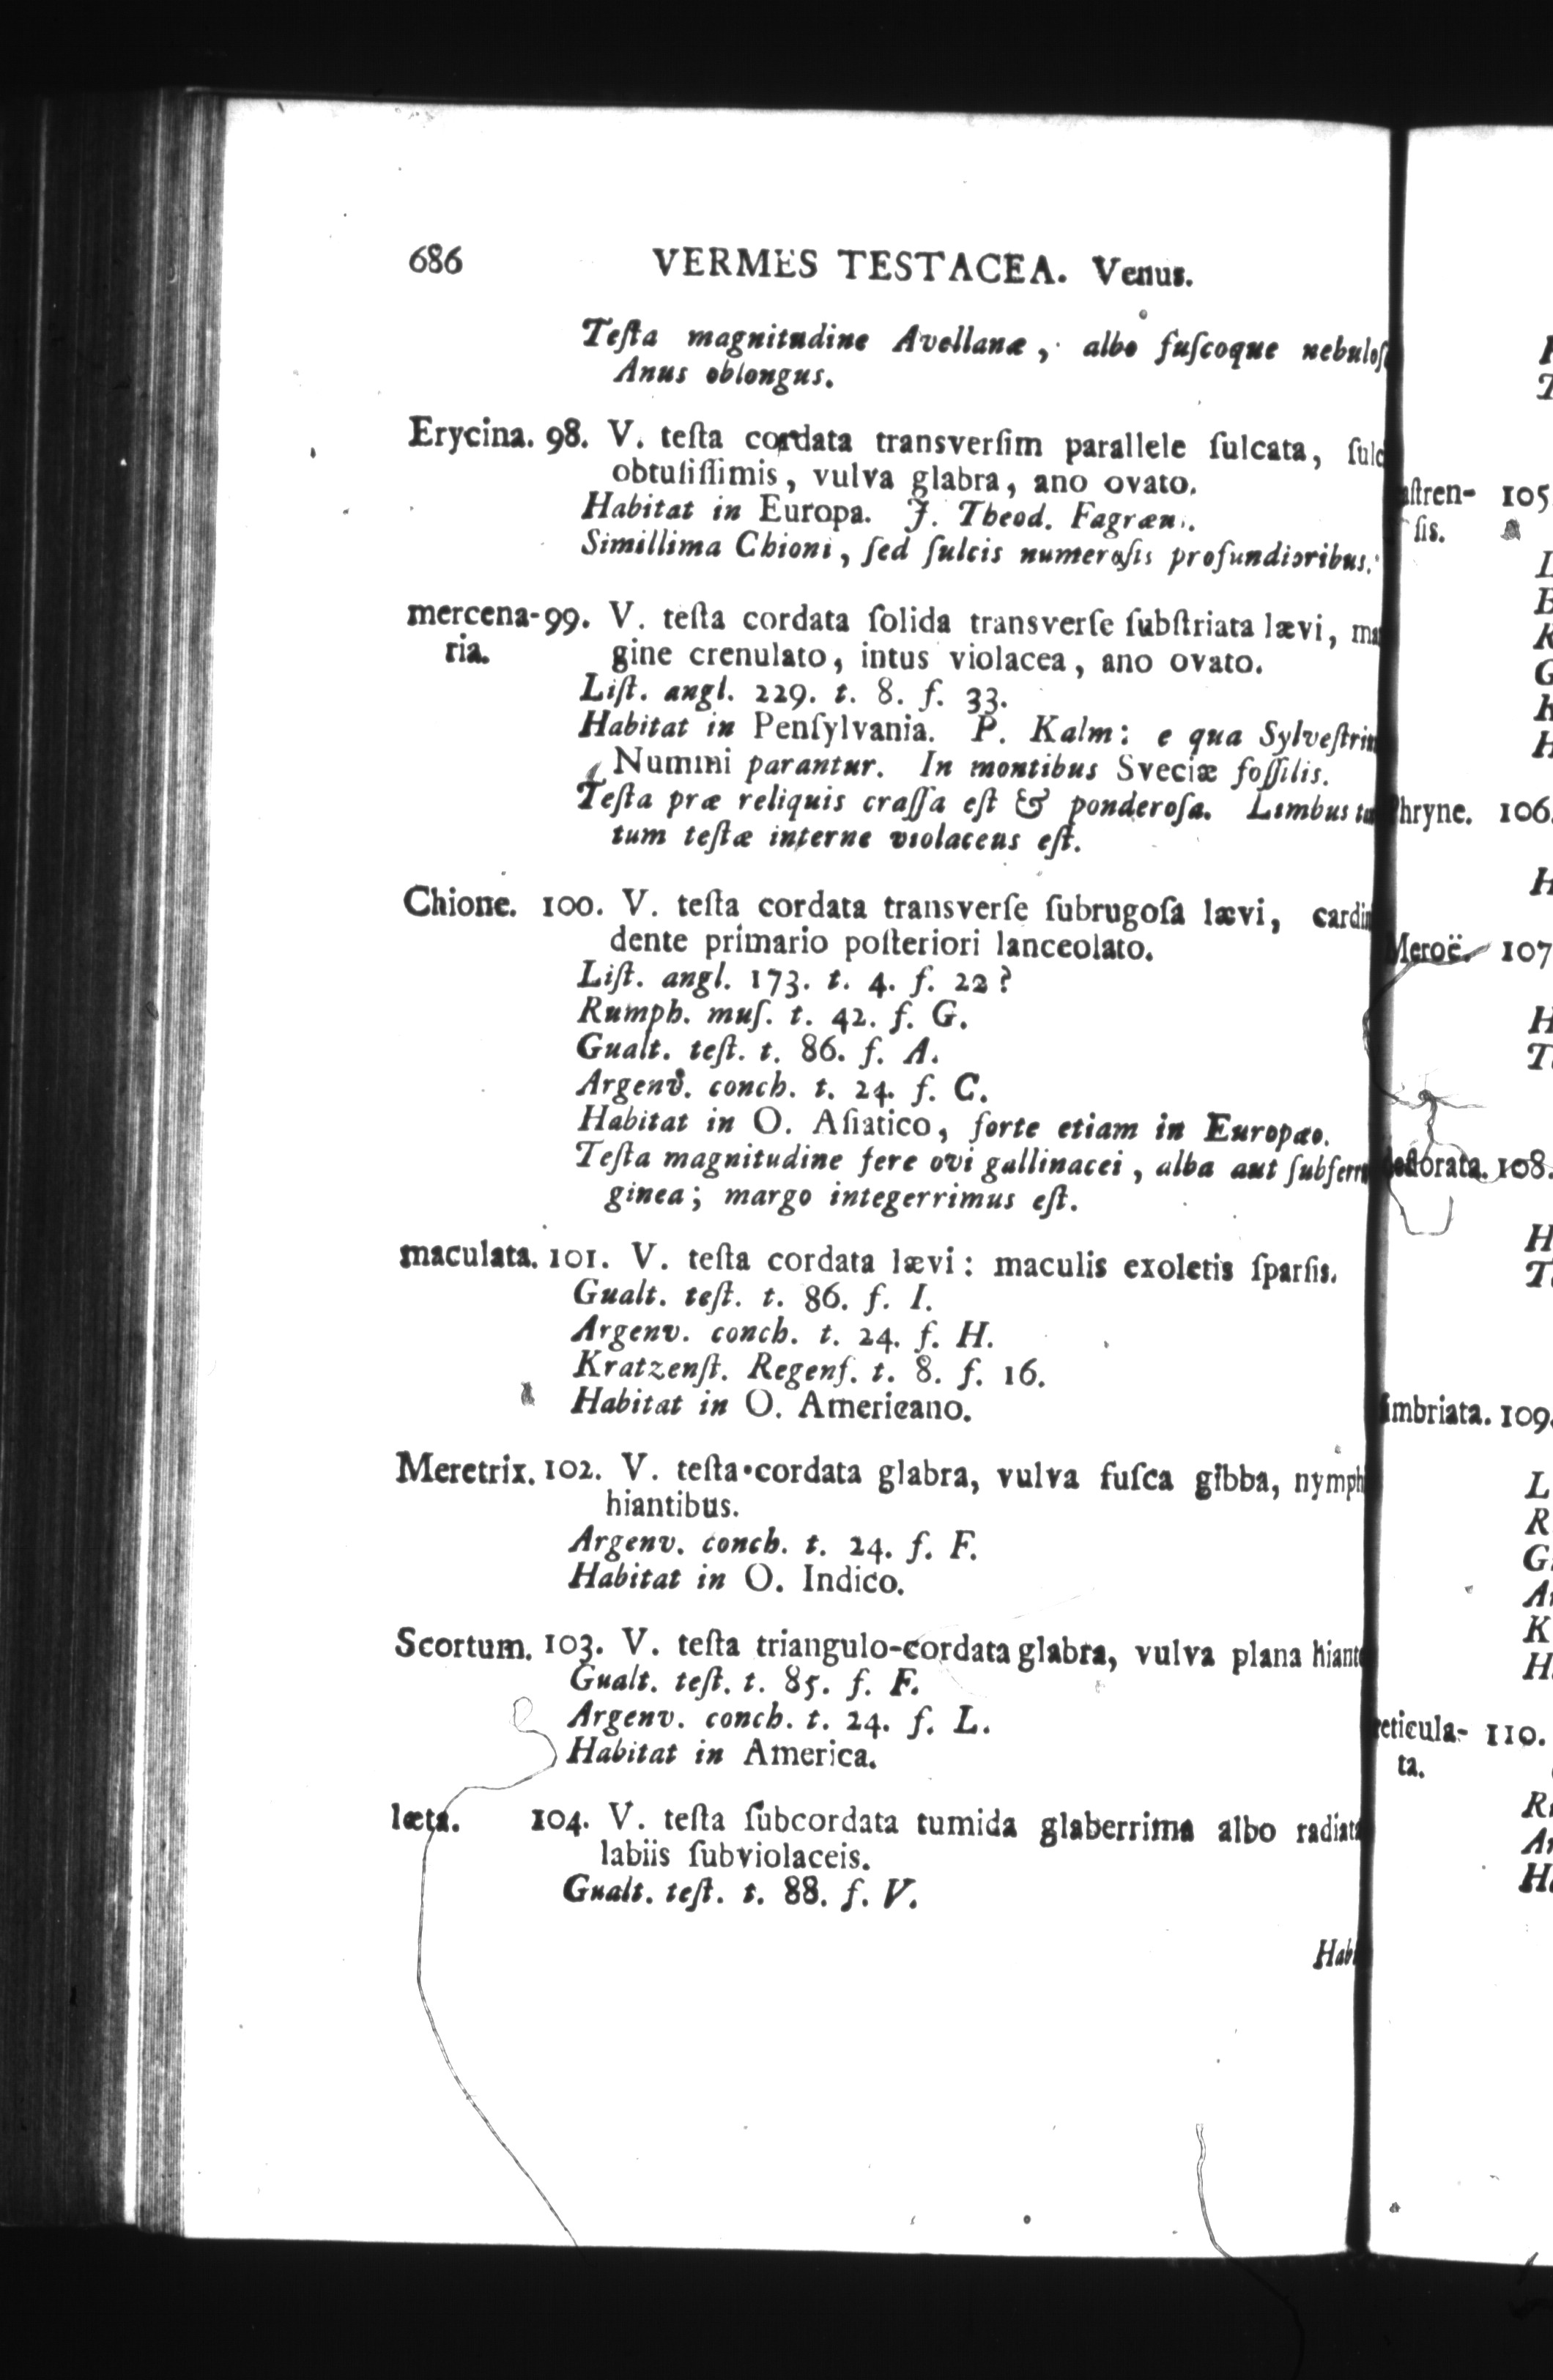 686 VERMES TESTACEA. Venus.
Teſta magnitudine Avellanæ, albo fuſcoque nebuloſ
Anus oblongus.
Erycina. 98. V. teſta cordata transverſim parallele ſulcata, ſulc
obtuſiſſimis, vulva glabra, ano ovato.
Habitat in Europa. J. Theod. Fagræn.
Simillima Chioni, ſed ſulcis numeroſis profundioribus.
mercena- 99. V. teſta cordata ſolida transverſe ſubſtriata lævi, ma
ria. gine crenulato, intus violacea, ano ovato.
Liſt. angl. 229. t. 8. f. 33.
Habitat in Penſylvania. P. Kalm: e qua Sylveſtrin
Nummi parantur. In montibus Sveciæ foſſilis.
Teſta præ reliquis craſſa eſt & ponderoſa. Limbus ta
tum teſtæ interne violaceus eſt.
Chione. 100. V. teſta cordata transverſe ſubrugoſa lævi, cardin
dente primario poſteriori lanceolato.
Liſt. angl. 173. t. 4. f. 22?
Rumph. muſ. t. 42. f. G.
Gualt. teſt. t. 86. f. A.
Argenv. conch. t. 24. f. C.
Habitat in O. Aſiatico, forte etiam in Europæo.
Teſta magnitudine fere ovi gallinacei, alba aut ſubferru
ginea; margo integerrimus eſt.
maculata. 101. V. teſta cordata lævi: maculis exoletis ſparſis.
Gualt. teſt. t. 86. f. I.
Argenv. conch. t. 24. f. H.
Kratzenſt. Regenſ. t. 8. f. 16.
Habitat in O. Americano.
Meretrix. 102. V. teſta cordata glabra, vulva fuſca gibba, nymph
hiantibus.
Argenv. conch. t. 24. f. F.
Habitat in O. Indico.
Scortum. 103. V. teſta triangulo-cordata glabra, vulva plana hiante
Gualt. teſt. t. 85. f. F.
Argenv. conch. t. 24. f. L.
Habitat in America.
læta. 104. V. teſta ſubcordata tumida glaberrima albo radiata
labiis ſubviolaceis.
Gualt. teſt. t. 88. f. V.
Habi
aſtren- 105
ſis.
L
B
K
G
K
H
Phryne. 106.
H
Meroë. 107
H
T
deflorata. 108.
H
T
fimbriata. 109.
L
R
G
A
K
H
reticula- 110.
ta.
R
A
H